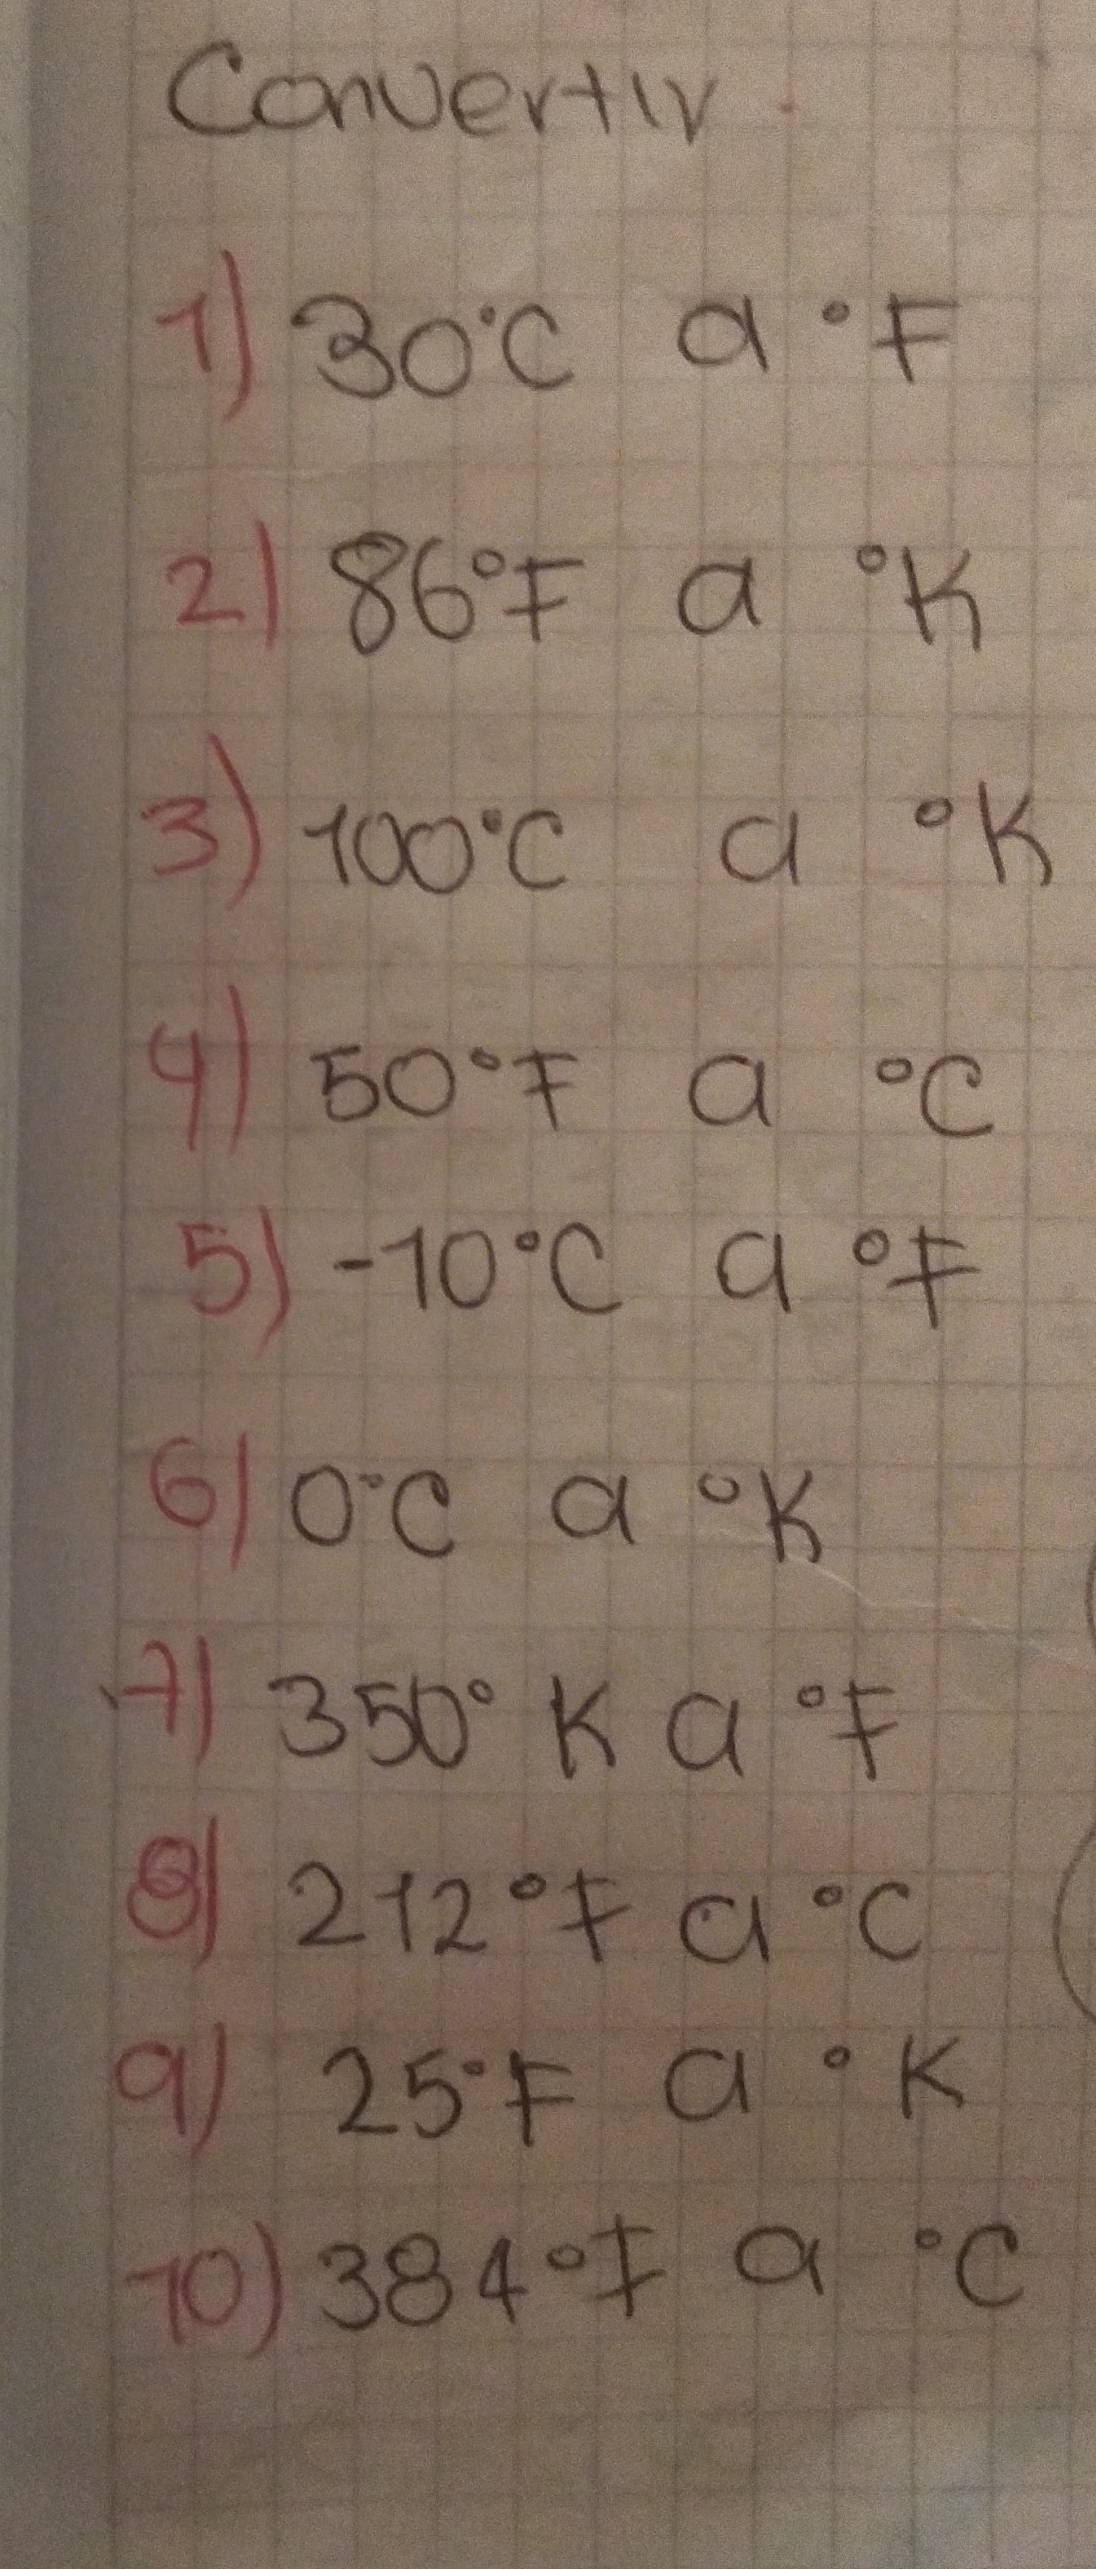 Convertir
1) 30°C a °F
2) 86°F a °K
3) 100°C a °K
4) 50°F a °C
5) -10°C a °F
6) 0°C a °K
7) 350° K a °F
8) 212°F a °C
9) 25°F a °K
10) 384°F a °C